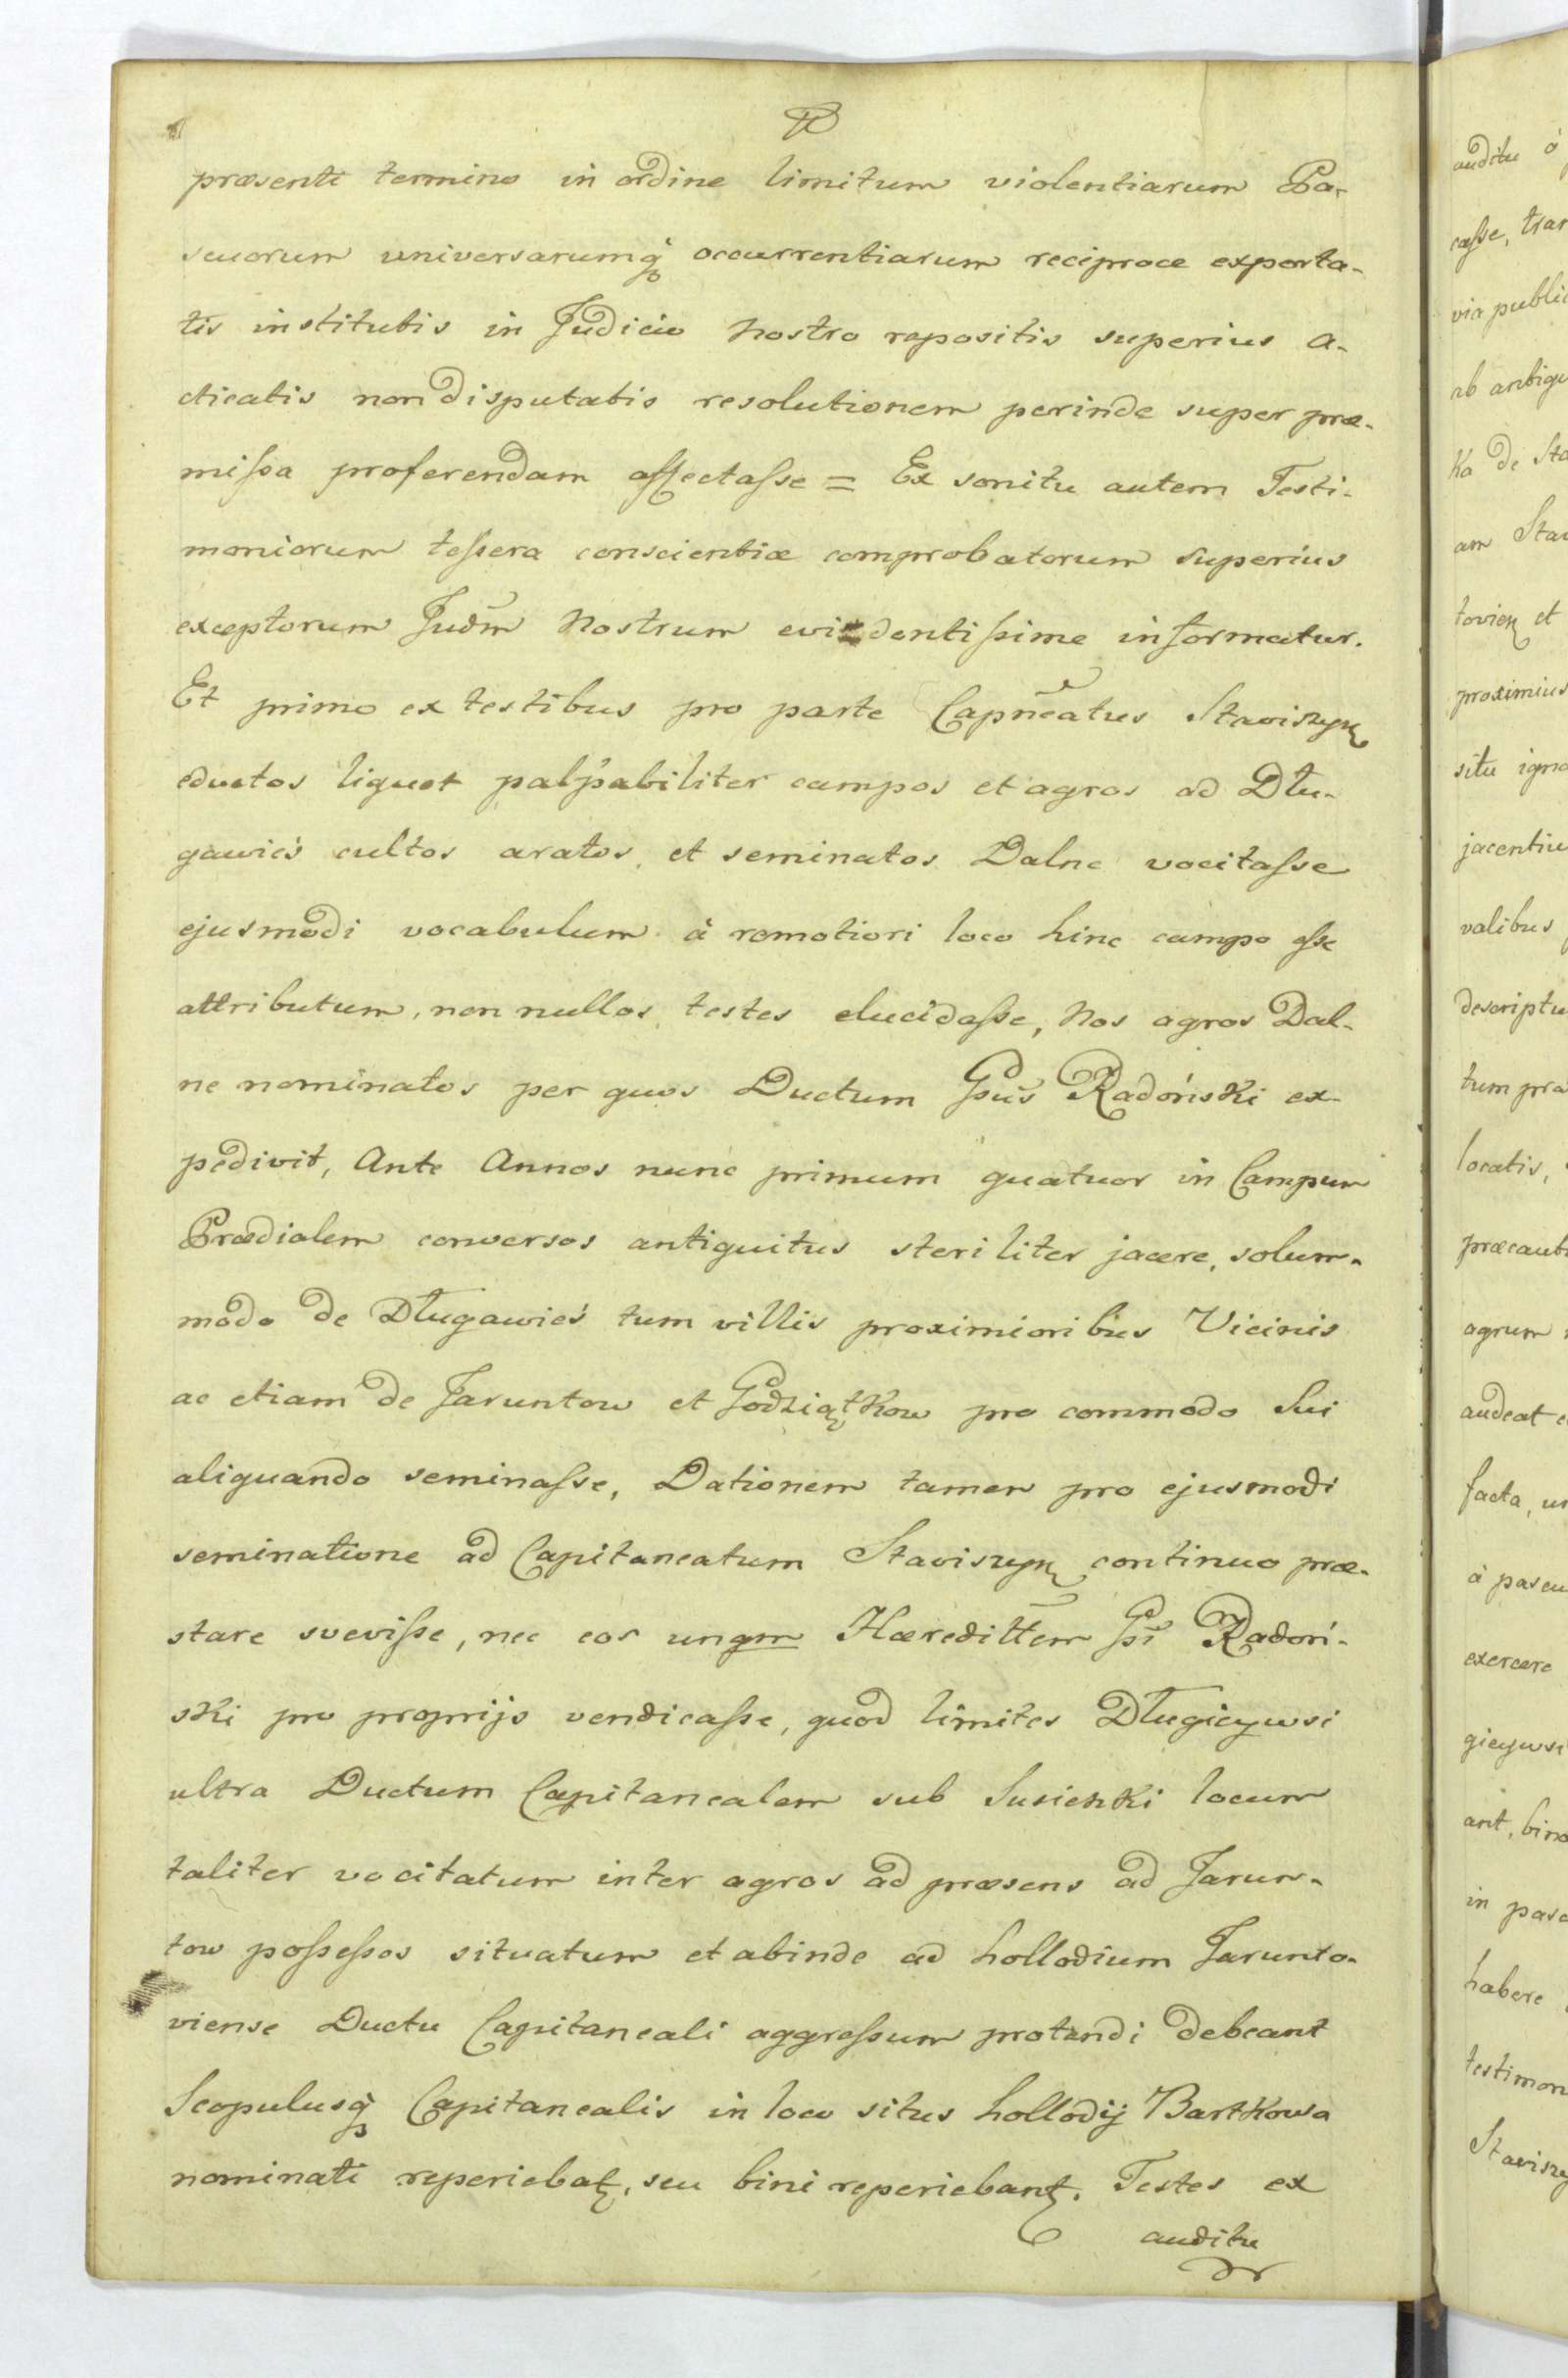 præsenti termino in ordine limitum violentiarum Pa-
scuorum universarumq̀ occurrentiarum reciproce exporta-
tis institutis in Judicio Nostro repositis superius a-
cticatis non disputatis resolutionem perinde super præ-
missa proferendam affectasse = Ex sonitu autem Testi-
moniorum tessera conscientiæ comprobatorum superius
exceptorum Judm̃ Nostrum evidentissime informatur.
Et primo ex testibus pro parte Capnẽatus Staviszyn
eductos liquet palpabiliter campos et agros ad Dłu-
gawieś cultos aratos, et seminatos Dalne vocitasse
ejusmodi vocabulum à remotiori loco hinc campo esse
attributum, non nullos testes elucidasse, Nos agros Dal-
ne nominatos per quos Ductum Gsũs Radoński ex-
pedivit, Ante Annos nunc primum quatuor in Campum
Prædialem conversos antiquitus steriliter jacere, solum-
modo de Długawieś tum villis proximioribus Vicinis
ac etiam de Jaruntow et Godziątkow pro commodo Sui
aliquando seminasse, Dationem tamen pro ejusmodi
seminatione ad Capitaneatum Staviszyn continuo præ-
stare svevisse, nec eos unqm Hæredittẽm Gsĩ Radoń-
ski pro proprijs vendicasse, quod limites Długieywsi
ultra Ductum Capitanealem sub Susienki locum
taliter vocitatum inter agros ad præsens ad Jarun-
tow possessos situatum et abinde ad hollodium Jarunto-
viense Ductu Capitaneali aggressum protendi debeant
Scopulusq̀ Capitanealis in loco situs hollodij Bartkowa
nominati reperiebat, seu bini reperiebant. Testes ex
auditu
auditu
casse,
via
ab
Ka de
am
et
proximius
situ
valibus
locatis,
agrum
audeat
facta,
exercere
bino
in
habere